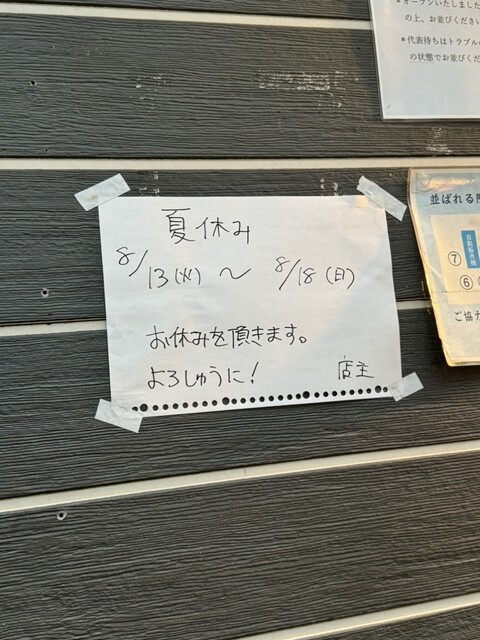 *オープンいたしました
の上、お並びください
*代表待ちはトラブルの
の状態でお並びくだ
夏休み
8/13(火) ~ 8/18(日)
お休みを頂きます。
よろしゅうに!
店主
並ばれる際
自動販売機
⑦
⑥
ご協力